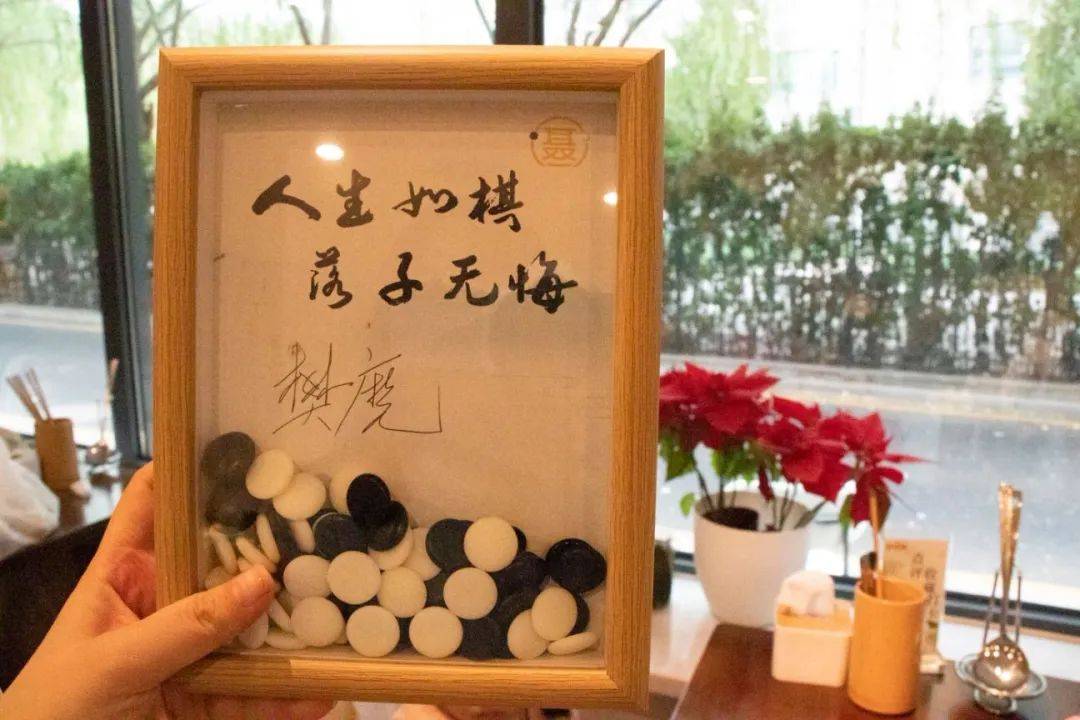 聂
人生如棋
落子无悔
樊麾